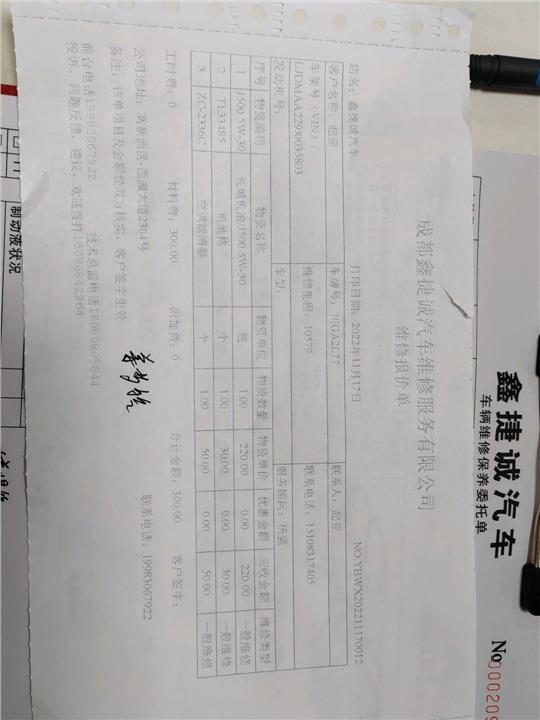 成都鑫捷诚汽车维修服务有限公司
维修报价单
店名：鑫捷诚汽车 打印日期：2022年11月17日 NO:YBWX202211170012
客户名称：起亚 车牌号：川GA2L77 联系人：起亚
车架号（VIN）：LJDMAA229J0035803 维修里程：10579 联系电话：15108317405
发动机号： 车型： 服务顾问：杨强
序号 物资编码 物资名称 物资单位 物资数量 物资单价 优惠金额 应收金额 维修类型
1 J500 5W-30 长城机油/J500 5W-30 瓶 1.00 220.00 0.00 220.00 一般维修
2 TL33485 机油格 个 1.00 30.00 0.00 30.00 一般维修
3 ZC-2336C 空调滤清器 个 1.00 50.00 0.00 50.00 一般维修
工时费：0 材料费：300.00 附加费：0 合计金额：300.00 客户签字：
公司地址：高新西区-西源大道2304号 联系电话：19983067922
备注：详单项目及金额经双方核实，客户签字生效
前台电话19983067922 技术总监电话18080605644
投诉、问题反馈、建议，欢迎拨打18086842964
鑫捷诚汽车
车辆维修保养委托单
No 000209
制动液状况